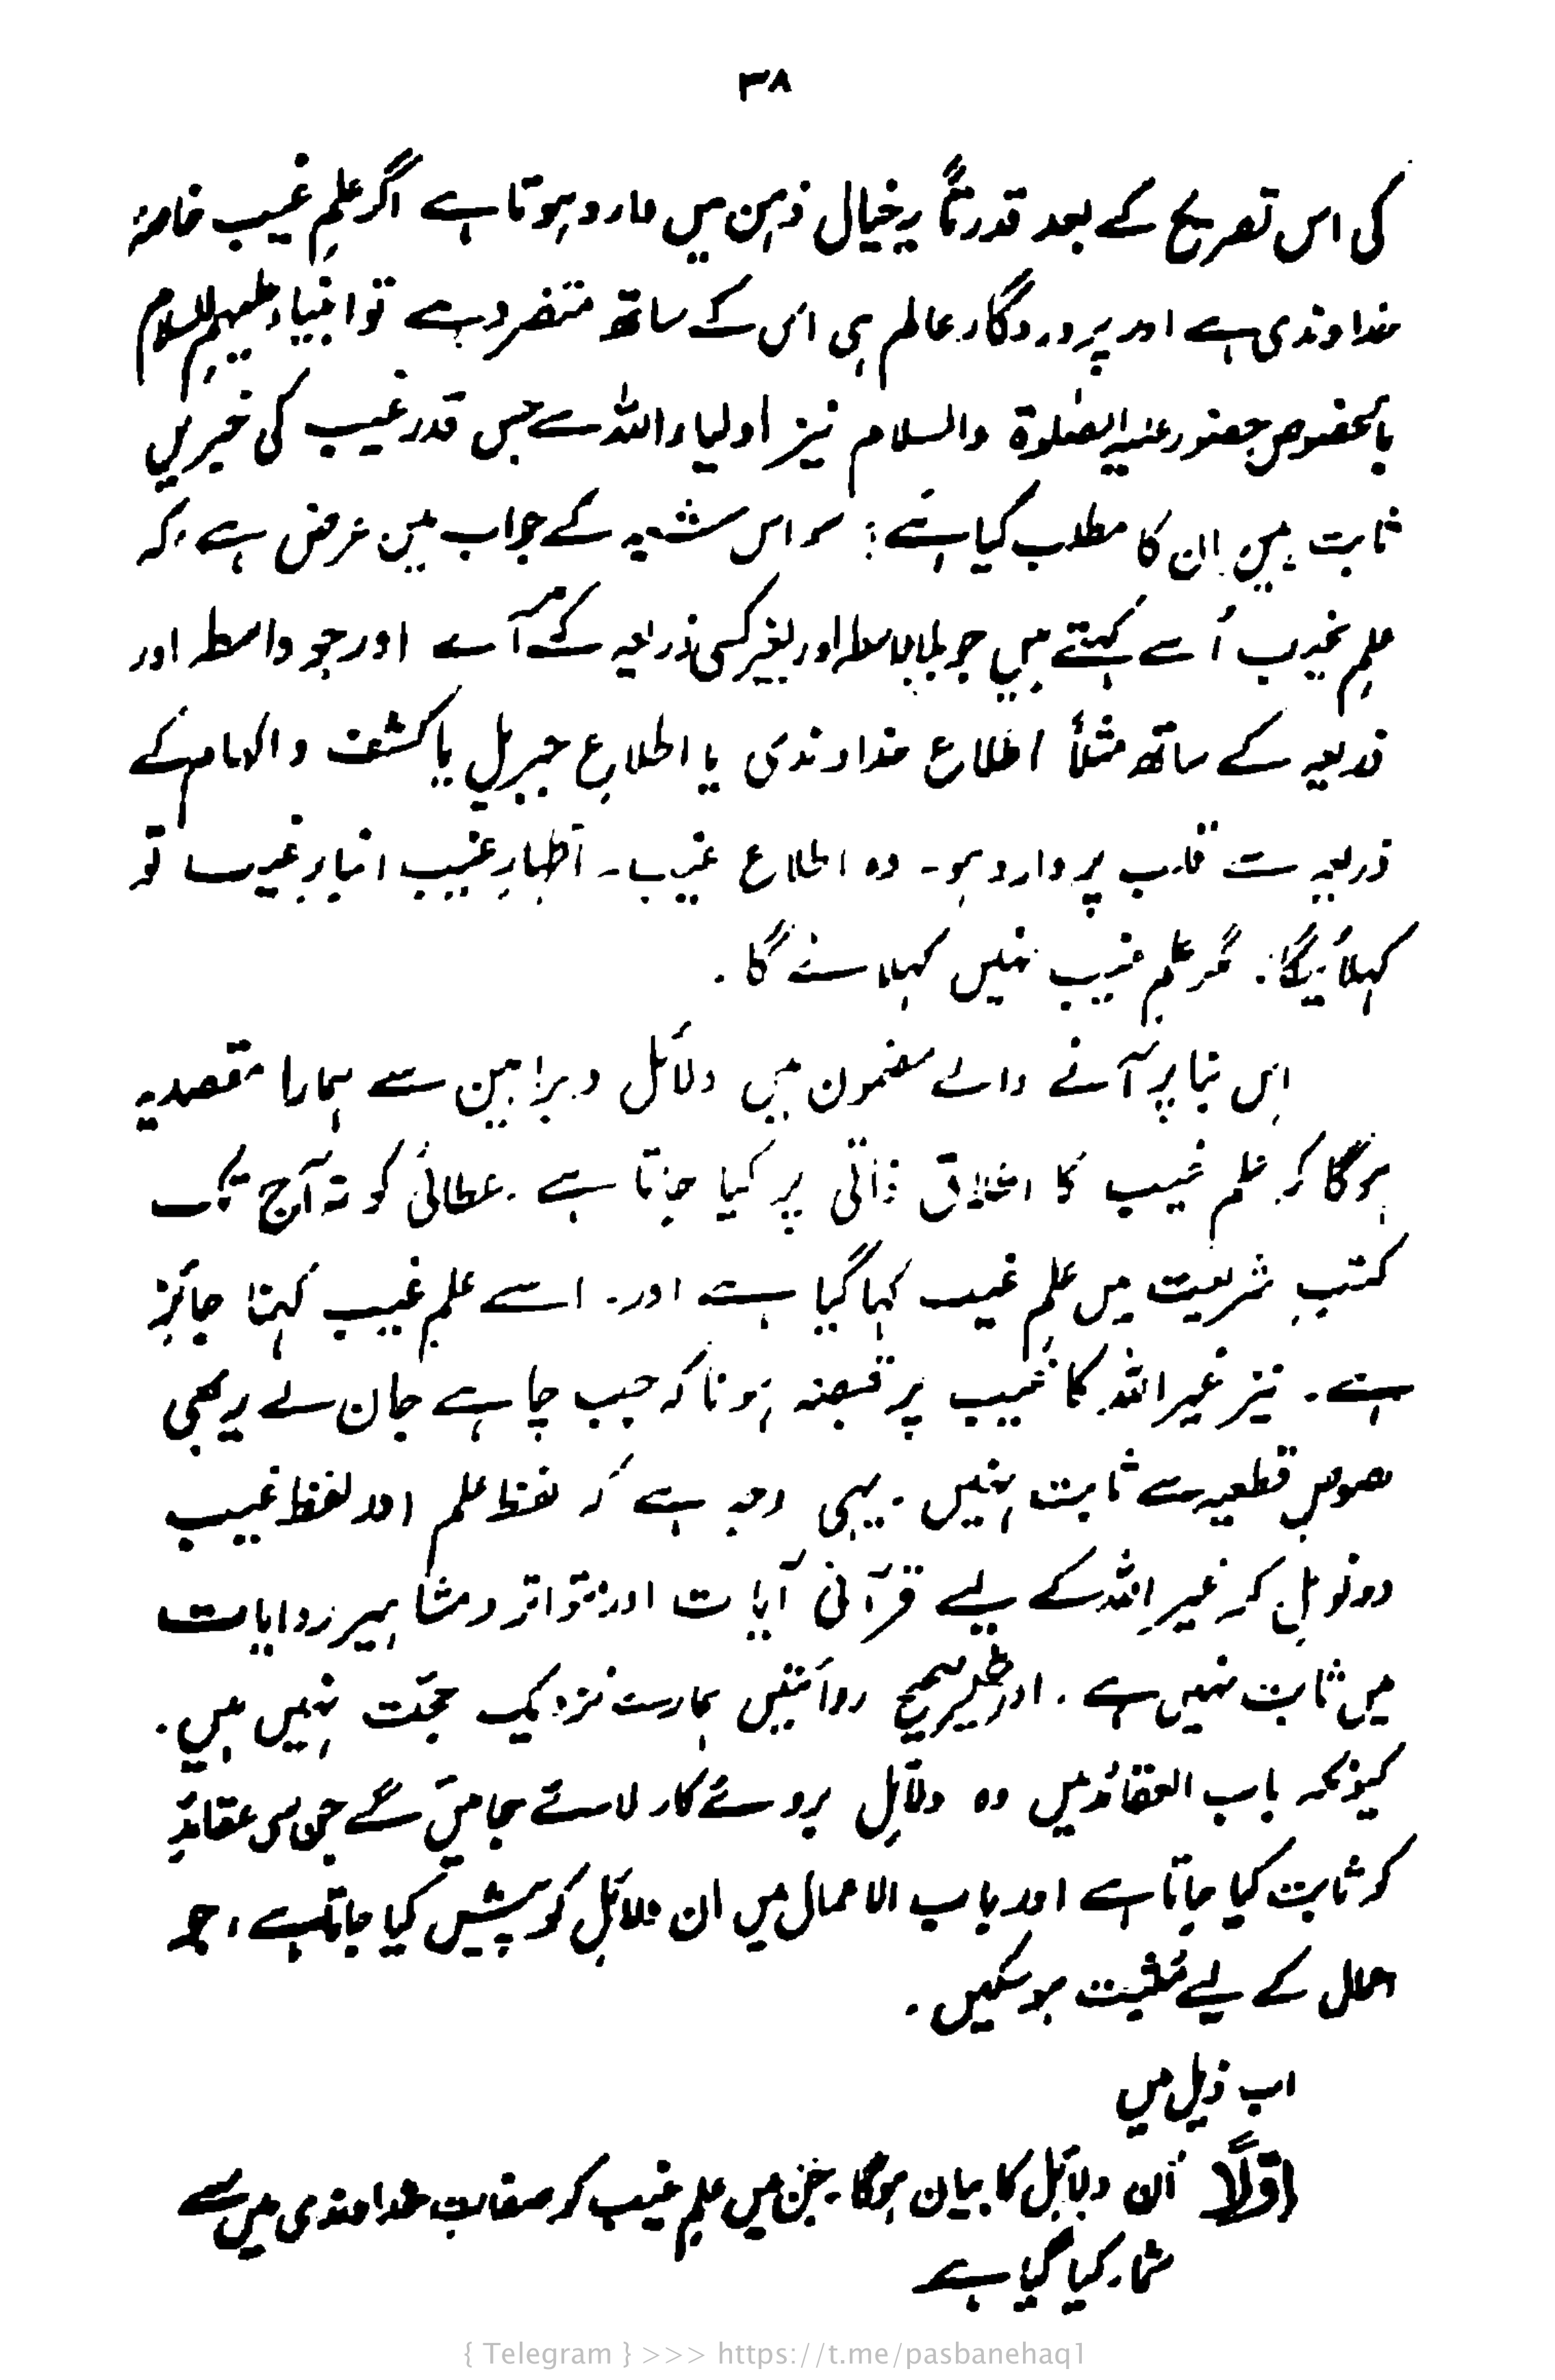 ۳۸
کی اس تصریح کے بعد قدرتاً یہ خیال ذہن میں وارد ہوتا ہے اگر علمِ غیب خاصۂ
خداوندی ہے اور پروردگار عالم ہی اس کے ساتھ متفرد ہے تو انبیاء علیہم السلام
بالخصوص حضور علیہ الصلوٰۃ والسلام نیز اولیاء اللہ سے جس قدر غیب کی خبریں
ثابت ہیں ان کا مطلب کیا ہے؟ سو اس شبہ کے جواب میں عرض ہے کہ
علمِ غیب اُسے کہتے ہیں جو بلا واسطہ اور بغیر کسی ذریعہ کے آئے اور جو واسطہ اور
ذریعہ کے ساتھ مثلاً اطلاع خداوندی یا اطلاعِ جبریل یا کشف و الہام کے
ذریعہ سے قلب پر وارد ہو۔ وہ اطلاع غیب۔ اظہارِ غیب انبارِ غیب تو
کہلائیگا۔ مگر علم غیب نہیں کہلائے گا۔
اِس بنا پر آنے والے مضمون میں دلائل و براہین سے ہمارا مقصد یہ
ہوگا کہ علم غیب کا اطلاق ذاتی پر کیا جاتا ہے۔ عطائی کو نہ آج تک
کتبِ شریعت میں علمِ غیب کہا گیا ہے اور۔ اسے علمِ غیب کہنا جائز
ہے۔ نیز غیر اللہ کا غیب پر قبضہ ہونا کہ جب چاہے جان لے یہ بھی
نصوصِ قطعیہ سے ثابت نہیں۔ یہی وجہ ہے کہ لفظ علم اور لفظ غیب
دونوں مل کر غیر اللہ کے لیے قرآنی آیات اور متواتر و مشاہیر روایات
میں ثابت نہیں ہے۔ اور غیر صحیح روائتیں ہمارے نزدیک حجّت نہیں ہیں۔
کیونکہ باب العقائد میں وہ دلائل بروئے کار لائے جائیں گے جن سے عقائد
کو ثابت کیا جاتا ہے اور باب الاعمال میں ان دلائل کو پیش کیا جاتا ہے، جو
اعمال کے لیے مُثبت ہو سکیں۔
اب ذیل میں
اوّلاً اُن دلائل کا بیان ہوگا۔ جن میں علمِ غیب کو صفاتِ خداوندی میں سے
شمار کیا گیا ہے
{ Telegram } >>> https://t.me/pasbanehaq1